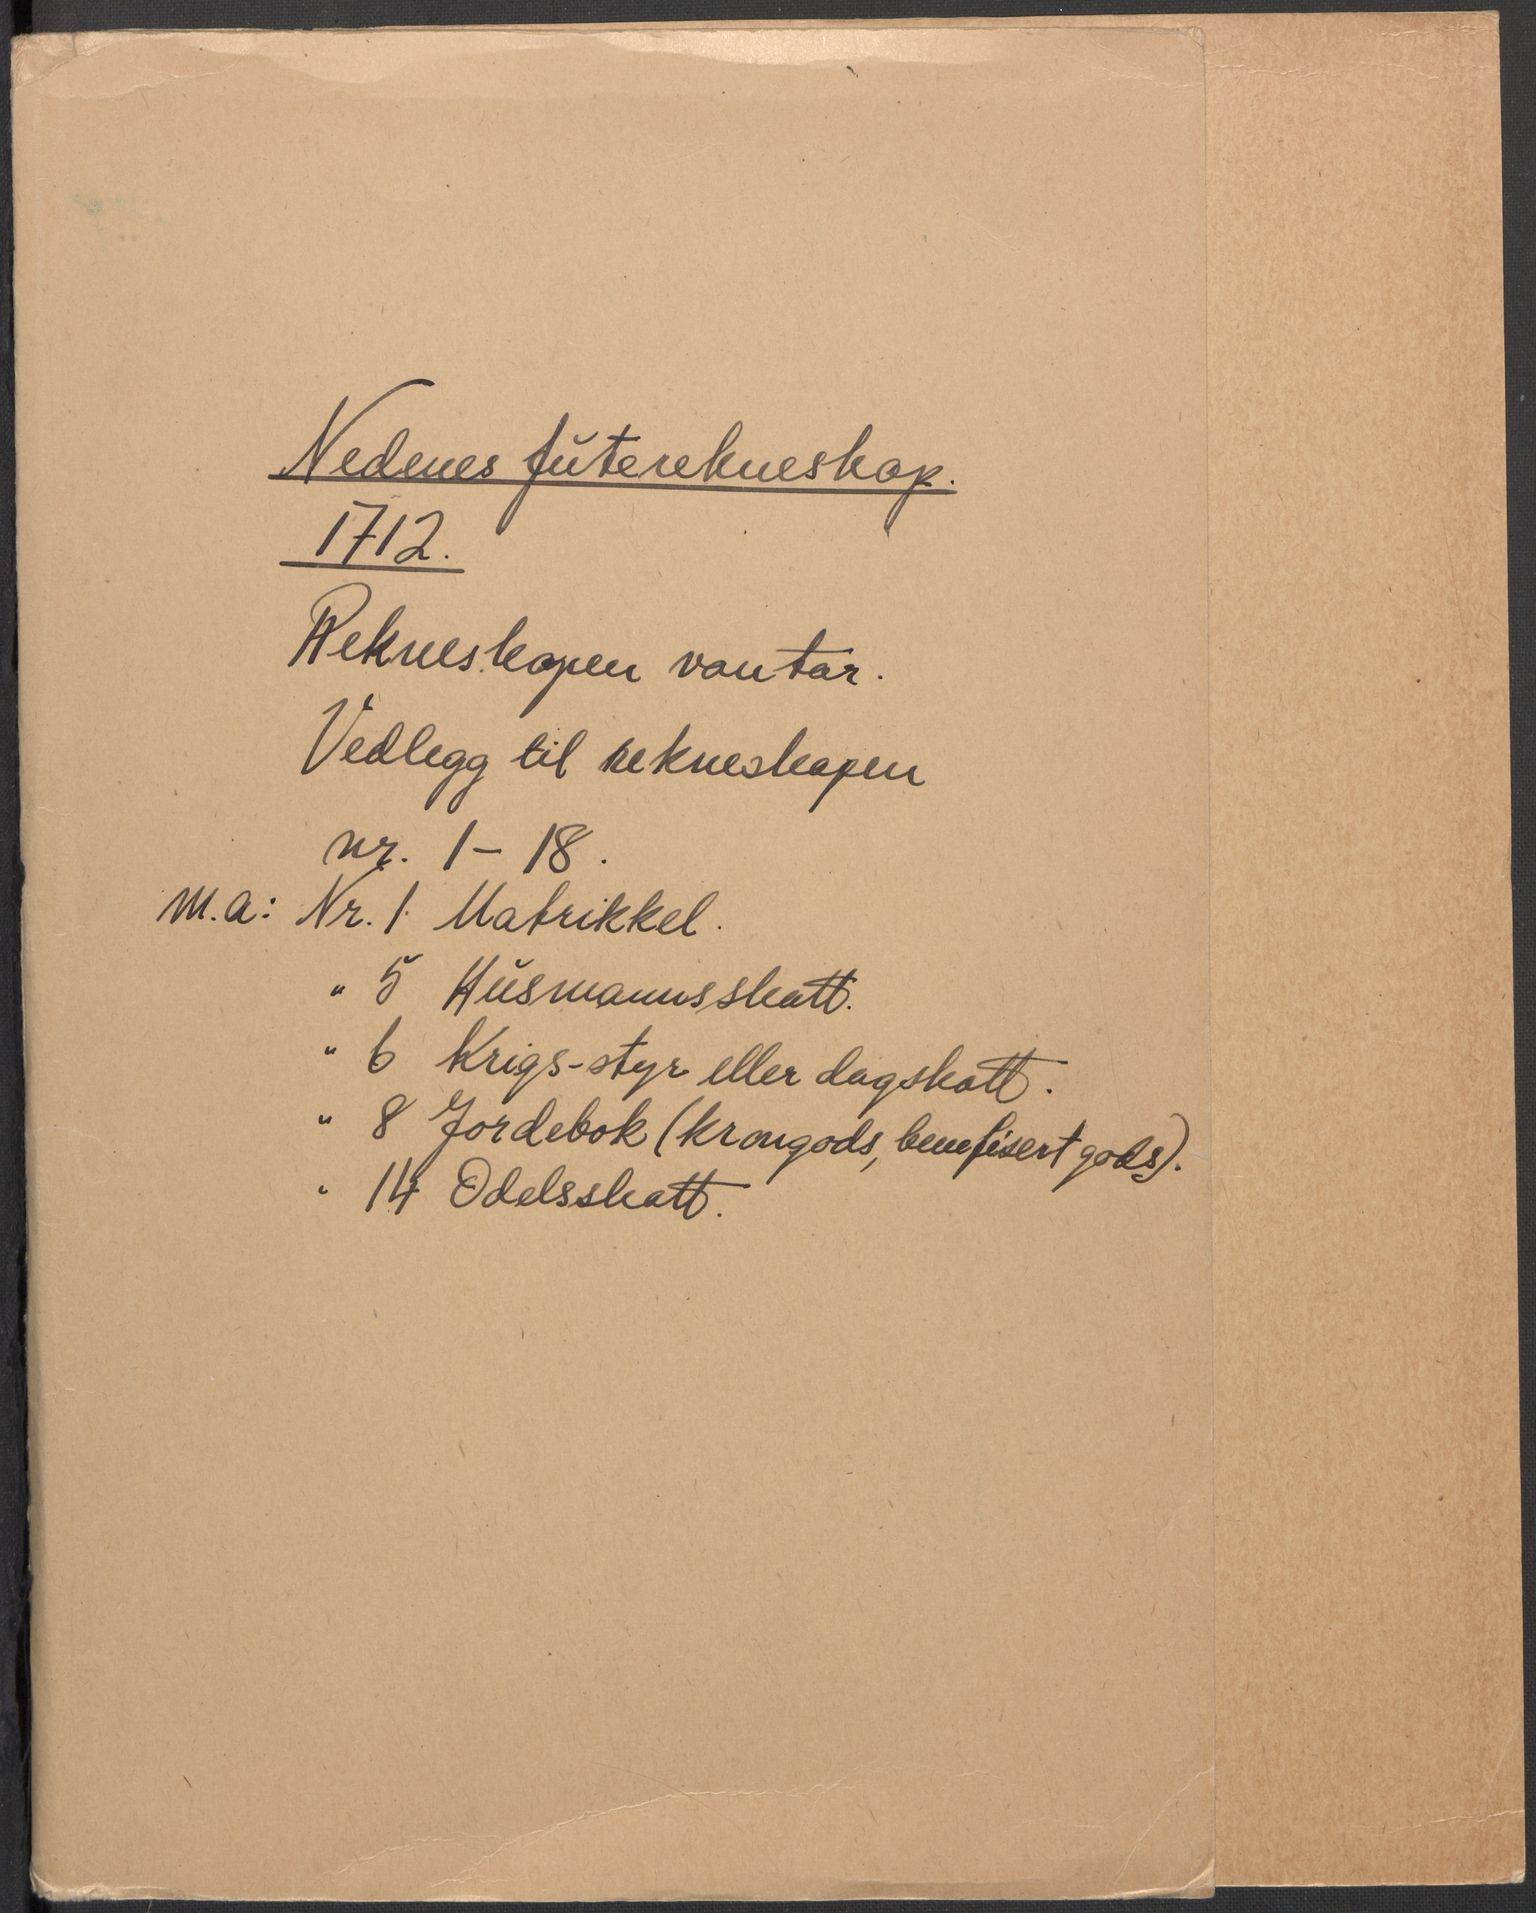 Nedenes futerekneskap.
1712.
Rekneskapen vantar.
Vedlegg til rekneskapen
nr. 1 – 18.
M.a: Nr. 1. Matrikkel.
" 5 Husmannsskatt.
" 6 Krigs-styr eller dagskatt.
" 8 Jordebok (krongods, benefisert gods).
" 14 Odelsskatt.